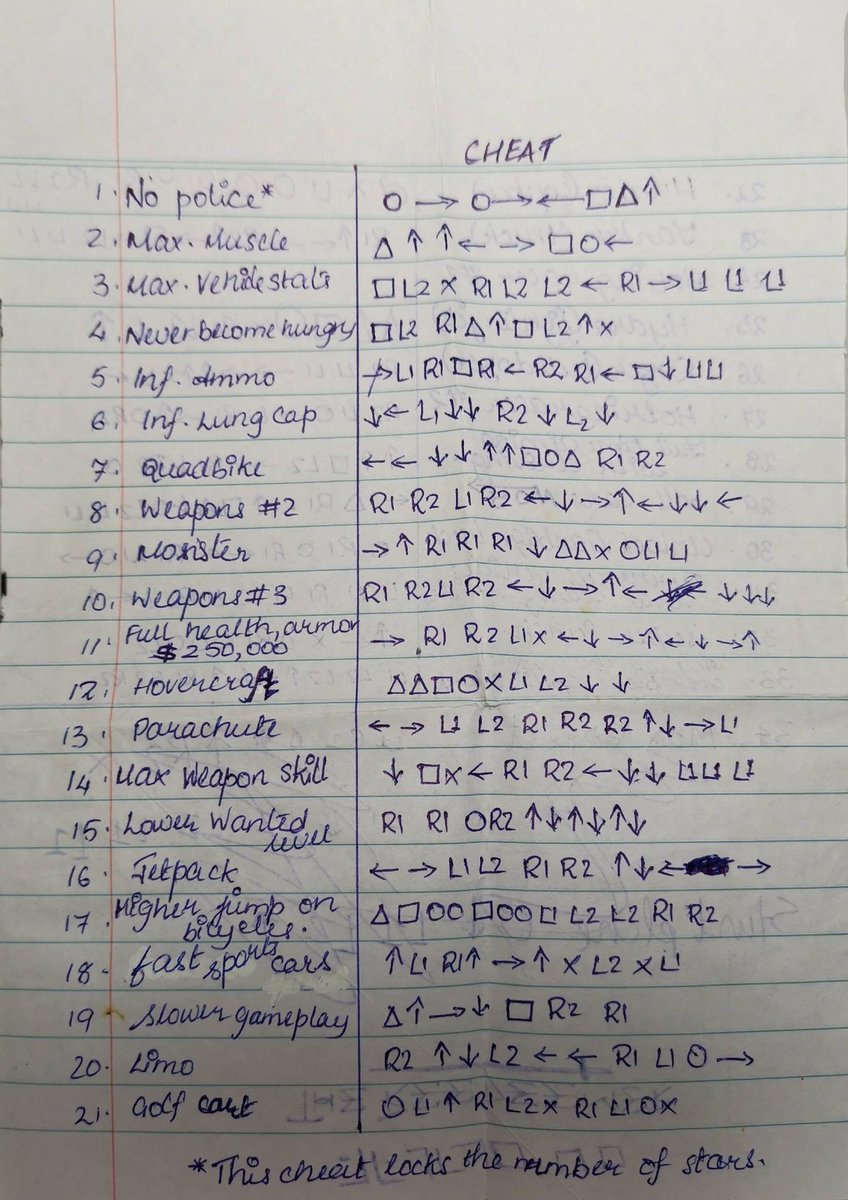 CHEAT
1. No police* ○ → ○ → ← □ △ ↑
2. Max. Muscle △ ↑ ↑ ← → □ ○ ←
3. Max. Vehicle stats □ L2 X R1 L2 L2 ← R1 → L1 L1 L1
4. Never become hungry □ L2 R1 △ ↑ □ L2 ↑ X
5. Inf. Ammo → L1 R1 □ R1 ← R2 R1 ← □ ↓ L1 L1
6. Inf. Lung Cap ↓ ← L1 ↓ ↓ R2 ↓ L2 ↓
7. Quadbike ← ← ↓ ↓ ↑ ↑ □ ○ △ R1 R2
8. Weapons #2 R1 R2 L1 R2 ← ↓ → ↑ ← ↓ ↓ ←
9. Monster → ↑ R1 R1 R1 ↓ △ △ X ○ L1 L1
10. Weapons #3 R1 R2 L1 R2 ← ↓ → ↑ ← ↓ ↓ ↓
11. Full health, armor
$250,000 → R1 R2 L1 X ← ↓ → ↑ ← ↓ → ↑
12. Hovercraft △ △ □ ○ X L1 L2 ↓ ↓
13. Parachute ← → L1 L2 R1 R2 R2 ↑ ↓ → L1
14. Max Weapon skill ↓ □ X ← R1 R2 ← ↓ ↓ L1 L1 L1
15. Lower Wanted
level R1 R1 ○ R2 ↑ ↓ ↑ ↓ ↑ ↓
16. Jetpack ← → L1 L2 R1 R2 ↑ ↓ ← →
17. Higher jump on
bicycles. △ □ ○ ○ □ ○ ○ □ L2 L2 R1 R2
18. fast sports cars ↑ L1 R1 ↑ → ↑ X L2 X L1
19. Slower gameplay △ ↑ → ↓ □ R2 R1
20. Limo R2 ↑ ↓ L2 ← ← R1 L1 ○ →
21. Golf cart ○ L1 ↑ R1 L2 X R1 L1 ○ X
*This cheat locks the number of stars.